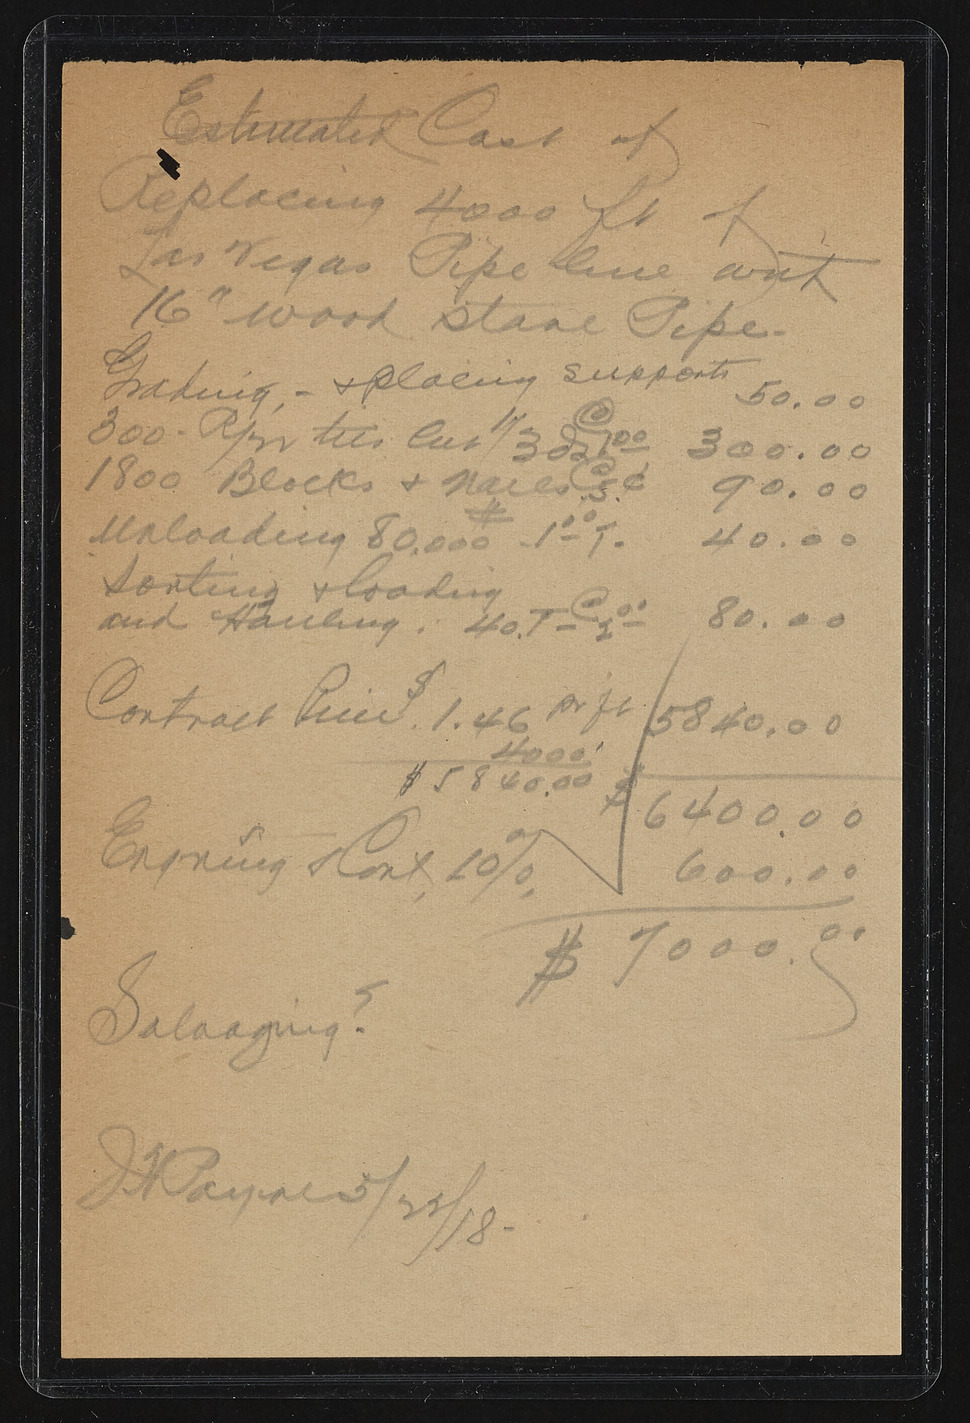 Estimated Cost of
Replacing 4000 ft of
Las Vegas Pipe line with
16" wood stave Pipe-
Grading, - & placing supports 50.00
300 - Ryr ties cut in 3 @ 1.00 300.00
1800 Blocks & Nails @ 5.¢ 90.00
Unloading 80,000 # 1.00 T. 40.00
Sorting & loading
and Hauling. 40.T - @ 2.00 80.00
Contract Price $ 1.46 pr ft 5840.00
4000'
$ 5840.00 $ 6400.00
Engring & Cont, 10% 600.00
$ 7000.00
Salvaging?
J H Payne 5/22/18-